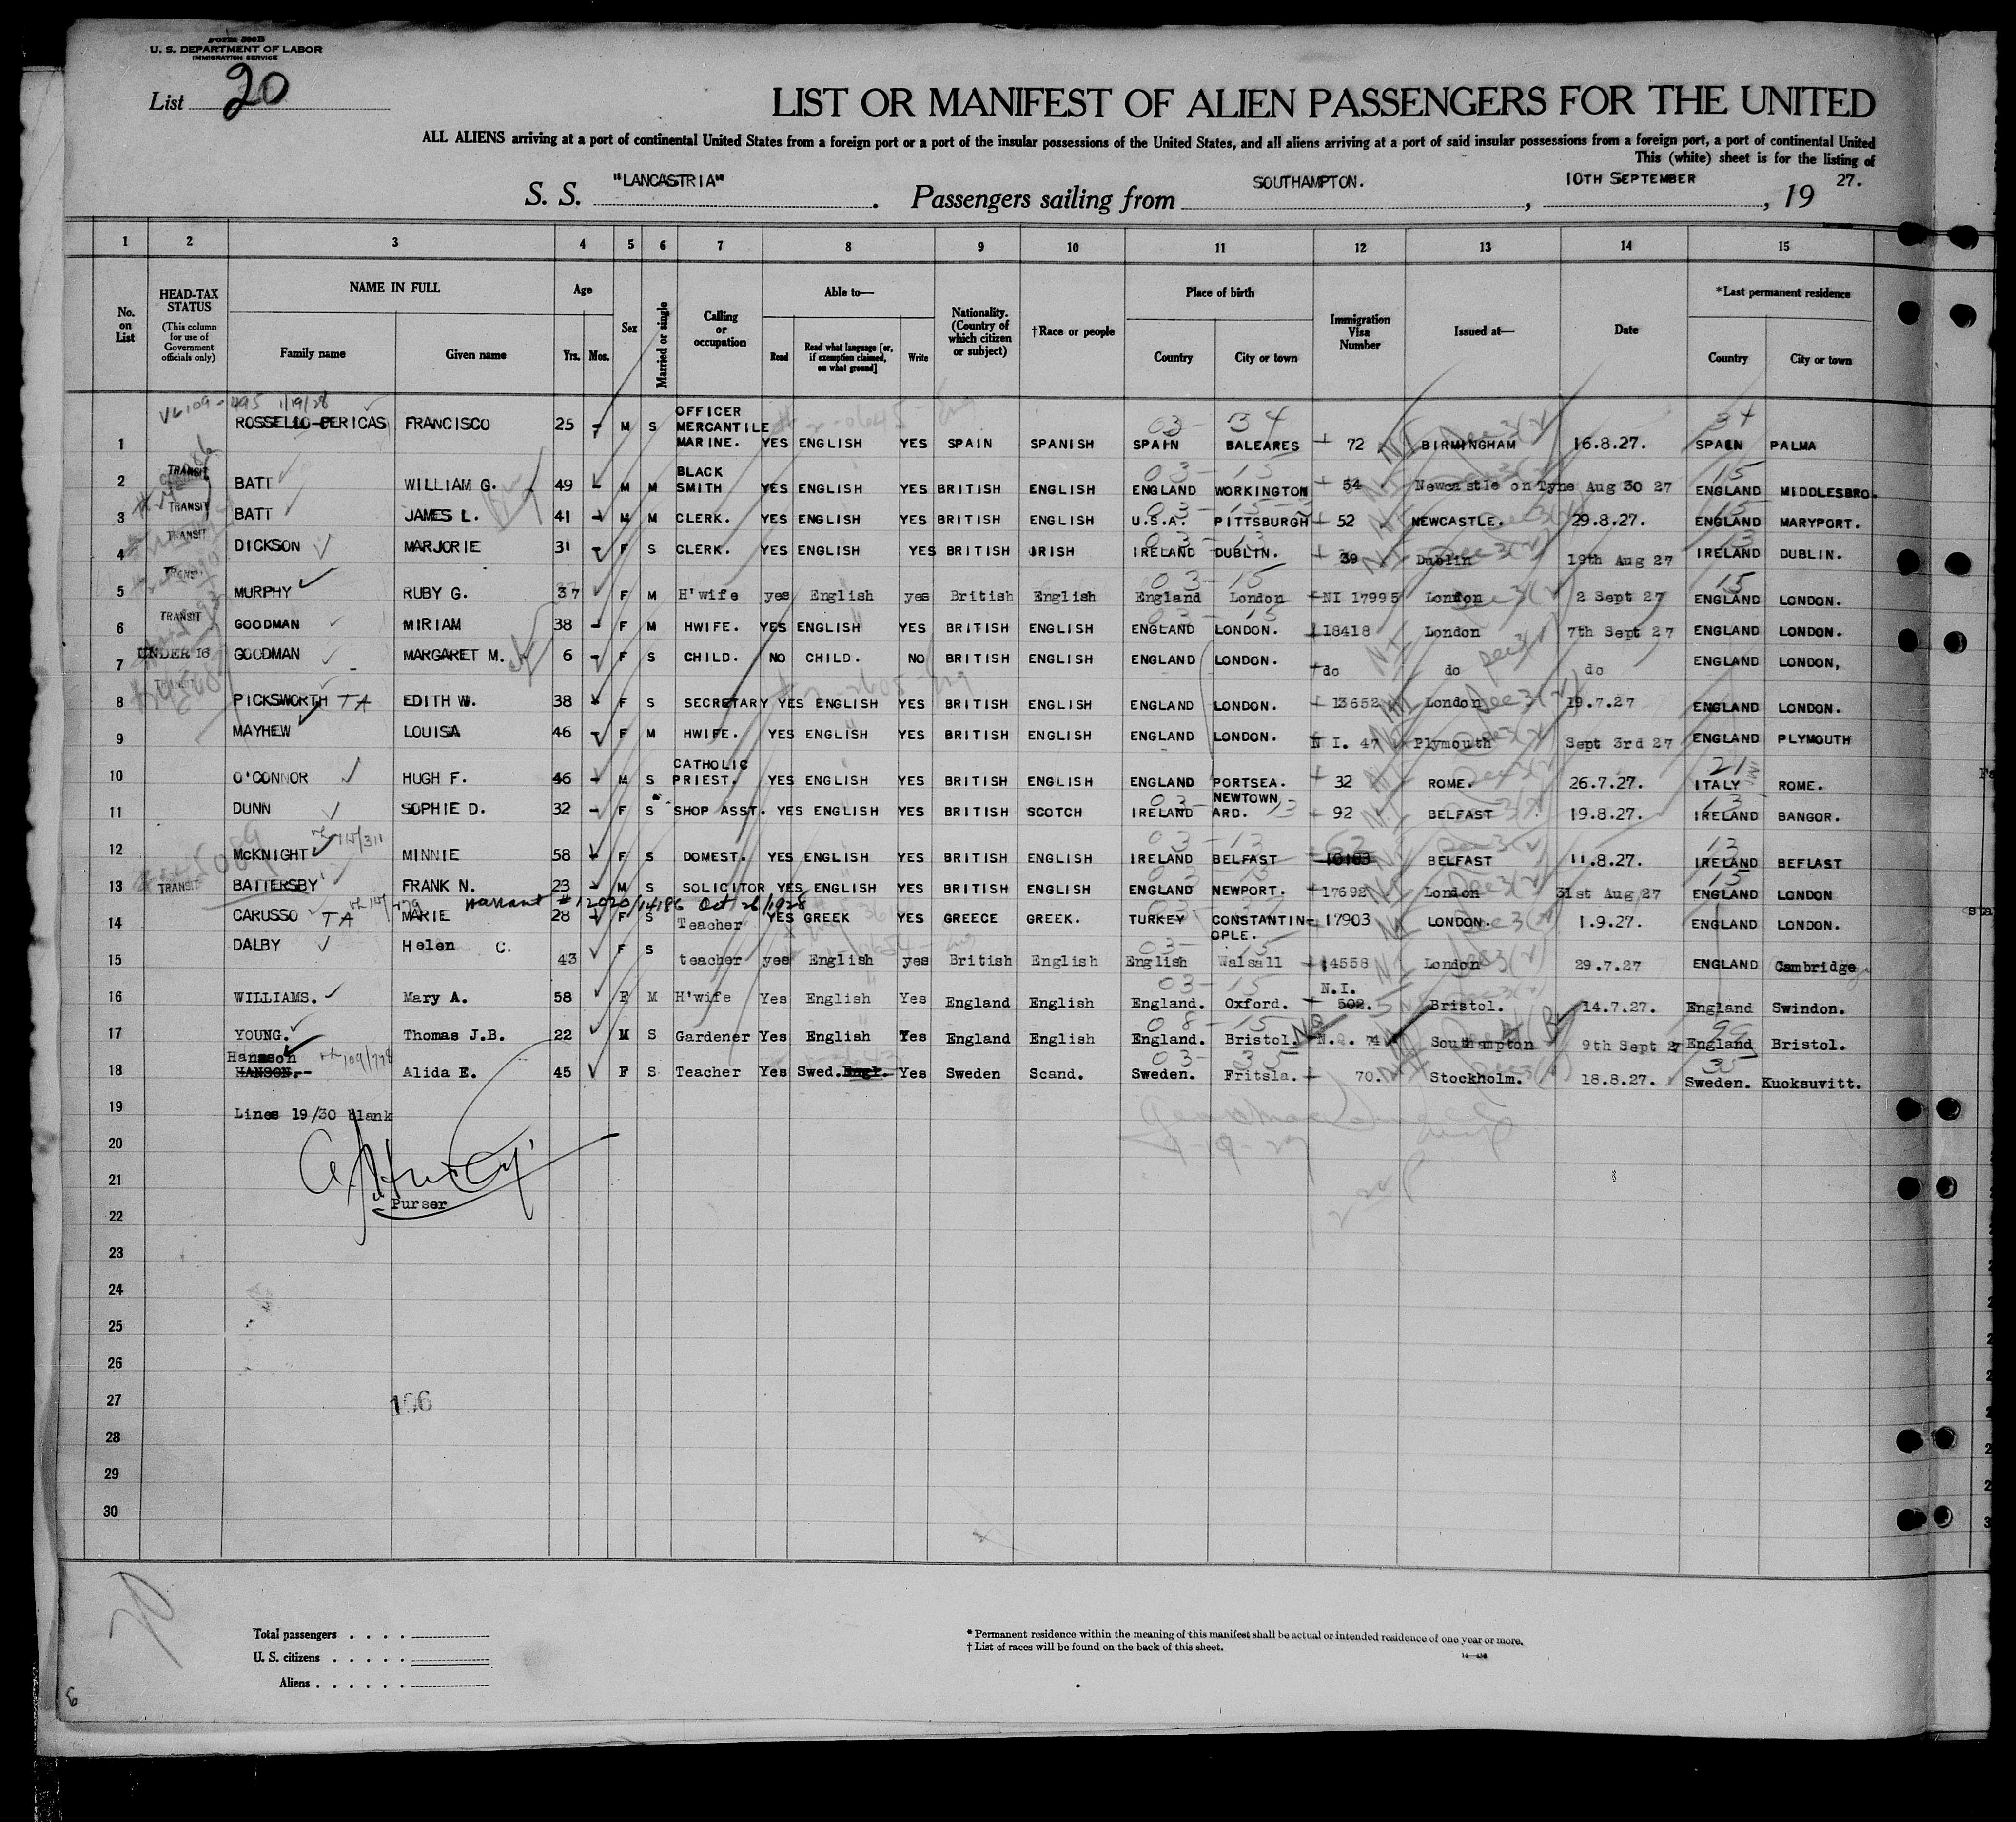 Form 500B
U. S. DEPARTMENT OF LABOR
IMMIGRATION SERVICE
List 20
LIST OR MANIFEST OF ALIEN PASSENGERS FOR THE UNITED
ALL ALIENS arriving at a port of continental United States from a foreign port or a port of the insular possessions of the United States, and all aliens arriving at a port of said insular possessions from a foreign port, a port of continental United
This (white) sheet is for the listing of
S. S. "LANCASTRIA". Passengers sailing from SOUTHAMPTON. , 10TH SEPTEMBER , 19 27.
1 2 3 4 5 6 7 8 9 10 11 12 13 14 15
No. on List
HEAD-TAX STATUS (This column for use of Government officials only)
NAME IN FULL Family name Given name
Age Yrs. Mos.
Sex
Married or single
Calling or occupation
Able to— Read Read what language [or, if exemption claimed, on what ground] Write
Nationality. (Country of which citizen or subject)
†Race or people
Place of birth Country City or town
Immigration Visa Number
Issued at—
Date
*Last permanent residence Country City or town
VL 109-495 1/19/28
1 ROSSELLO-PERICAS FRANCISCO 25 - M S OFFICER MERCANTILE MARINE. YES ENGLISH YES SPAIN SPANISH SPAIN BALEARES 72 BIRMINGHAM 16.8.27. SPAIN PALMA
2 TRANSIT BATT WILLIAM G. 49 - M M BLACK SMITH YES ENGLISH YES BRITISH ENGLISH ENGLAND WORKINGTON 54 Newcastle on Tyne Aug 30 27 ENGLAND MIDDLESBRO.
3 TRANSIT BATT JAMES L. 41 - M M CLERK. YES ENGLISH YES BRITISH ENGLISH U.S.A. PITTSBURGH 52 NEWCASTLE. 29.8.27. ENGLAND MARYPORT.
4 TRANSIT DICKSON MARJORIE 31 F S CLERK. YES ENGLISH YES BRITISH IRISH IRELAND DUBLIN. 39 Dublin 19th Aug 27 IRELAND DUBLIN.
5 TRANSIT MURPHY RUBY G. 37 F M H'wife yes English yes British English England London NI 17995 London 2 Sept 27 ENGLAND LONDON.
6 TRANSIT GOODMAN MIRIAM 38 - F M HWIFE. YES ENGLISH YES BRITISH ENGLISH ENGLAND LONDON. 18418 London 7th Sept 27 ENGLAND LONDON.
7 UNDER 16 GOODMAN MARGARET M. 6 - F S CHILD. NO CHILD. NO BRITISH ENGLISH ENGLAND LONDON. do do do ENGLAND LONDON,
8 TRANSIT PICKSWORTH TA EDITH W. 38 F S SECRETARY YES ENGLISH YES BRITISH ENGLISH ENGLAND LONDON. 13652 London 19.7.27 ENGLAND LONDON.
9 MAYHEW LOUISA 46 F M HWIFE. YES ENGLISH YES BRITISH ENGLISH ENGLAND LONDON. N I. 47 Plymouth Sept 3rd 27 ENGLAND PLYMOUTH
10 O'CONNOR HUGH F. 46 - M S CATHOLIC PRIEST. YES ENGLISH YES BRITISH ENGLISH ENGLAND PORTSEA. 32 ROME. 26.7.27. ITALY ROME.
11 DUNN SOPHIE D. 32 - F S SHOP ASST. YES ENGLISH YES BRITISH SCOTCH IRELAND NEWTOWN ARD. 92 BELFAST 19.8.27. IRELAND BANGOR.
12 McKNIGHT MINNIE 58 - F S DOMEST. YES ENGLISH YES BRITISH ENGLISH IRELAND BELFAST 62 BELFAST 11.8.27. IRELAND BEFLAST
13 TRANSIT BATTERSBY FRANK N. 23 - M S SOLICITOR YES ENGLISH YES BRITISH ENGLISH ENGLAND NEWPORT. 17692 London 31st Aug 27 ENGLAND LONDON
Warrant #12020/14186 Oct 26/1928
14 CARUSSO TA MARIE 28 - F S Teacher YES GREEK YES GREECE GREEK. TURKEY CONSTANTINOPLE. 17903 LONDON. 1.9.27. ENGLAND LONDON.
15 DALBY Helen C. 43 F S teacher yes English yes British English English Walsall 14558 London 29.7.27 ENGLAND Cambridge
16 WILLIAMS. Mary A. 58 F M H'wife Yes English Yes England English England. Oxford. N.I. 502. 5 Bristol. 14.7.27. England Swindon.
17 YOUNG. Thomas J.B. 22 M S Gardener Yes English Yes England English England. Bristol. 74 Southampton 9th Sept 27 England Bristol.
18 Hansson HANSON.- Alida E. 45 F S Teacher Yes Swed. Engl. Yes Sweden Scand. Sweden. Fritsla. 70. Stockholm. 18.8.27. Sweden. Kuoksuvitt.
19 Lines 19/30 blank
20
21
Purser
22
23
24
25
26
27
28
29
30
Total passengers . . . .
U. S. citizens . . . . .
Aliens . . . . . .
* Permanent residence within the meaning of this manifest shall be actual or intended residence of one year or more.
† List of races will be found on the back of this sheet.